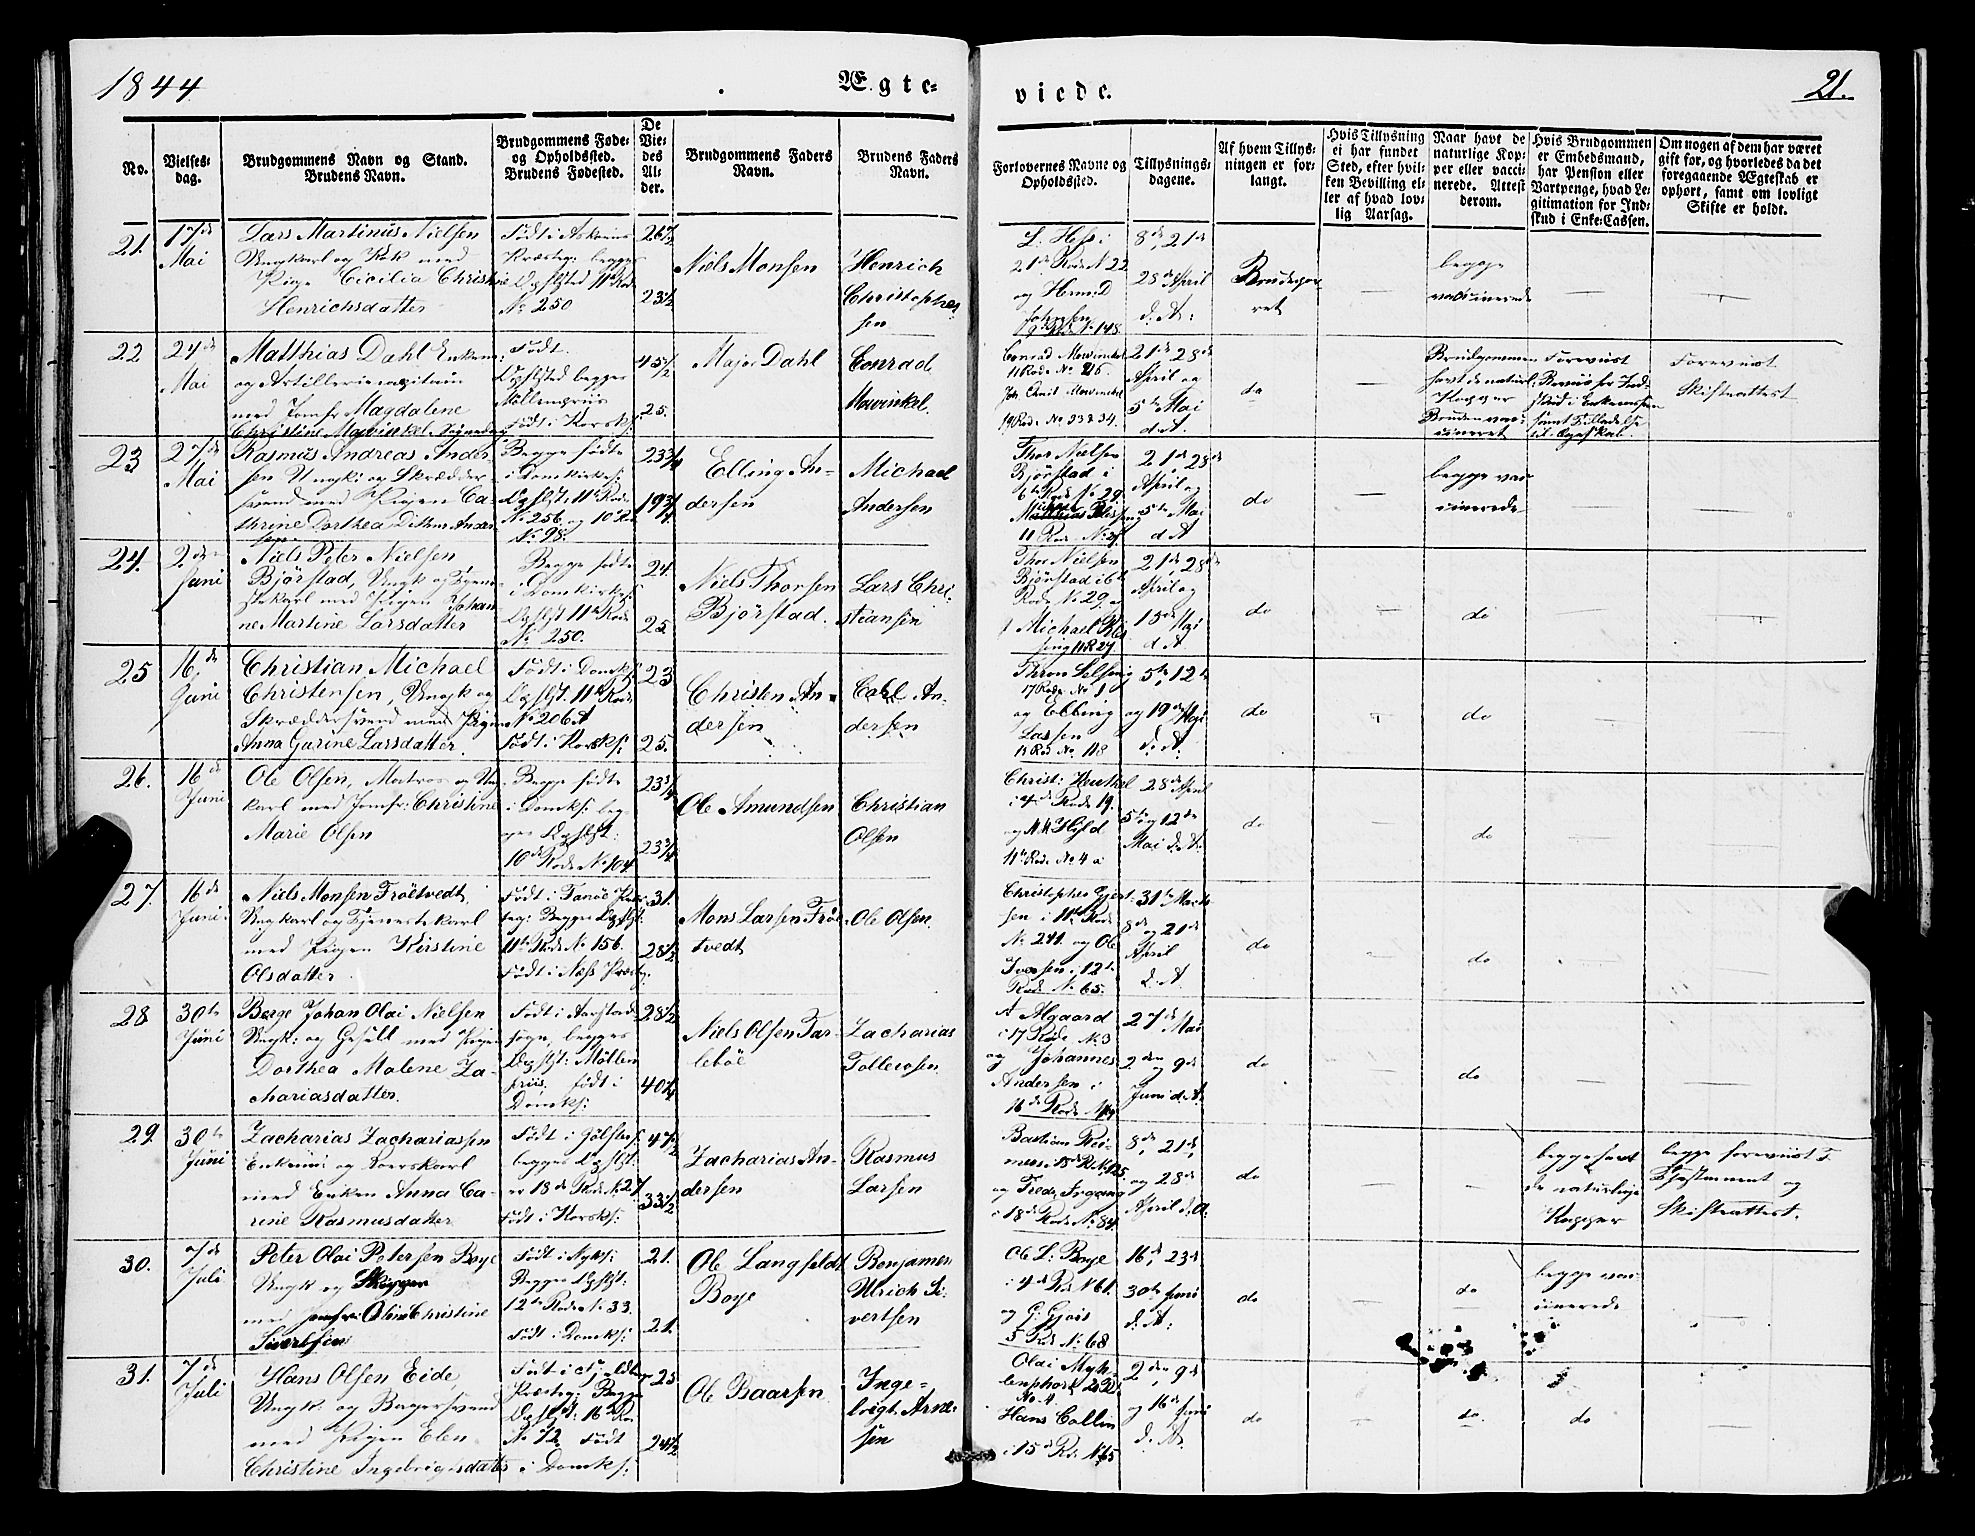 1844
Ægte-
viede.
21.
No.
Vielses-
dag.
Brudgommens Navn og Stand.
Brudens Navn.
Brudgommens Føde-
og Opholdssted.
Brudens Fødested.
De
Vie-
des
Al-
der.
Brudgommens Faders
Navn.
Brudens Faders
Navn.
Forlovernes Navne og
Opholdssted.
Tillysnings-
dagene.
Af hvem Tillys-
ningen er for-
langt.
Hvis Tillysning
ei har fundet
Sted, efter hvil-
ken Bevilling el-
ler af hvad lov-
lig Aarsag.
Naar havt de
naturlige Kop-
per eller vacci-
nerede. Attest
derom.
Hvis Brudgommen
er Embedsmand,
har Pension eller
Vartpenge, hvad Le-
gitimation for Ind-
skud i Enke-Cassen.
Om nogen af dem har været
gift før, og hvorledes da det
foregaaende Ægteskab er
ophørt, samt om lovligt
Skifte er holdt.
21.
17de
Mai
Lars Martinus Nielsen
Ungkarl og Kok med
Pige Cicilia Christine
Henrichsdatter
Født i Askøens
Præsteg: begges
Opholdsted 11te Rode
No 250
26 1/2
23 1/2
Niels Monsen
Henrich
Christopher
sen
L: Hess i
21de Rode N 22
og Hermd
Johnsen
9de Rode No 148.
8de, 21de
28de April
d. A:
Brudepar
ret
begge
vaccinerede
22
24de
Mai
Matthias Dahl Enkem:
og Artilleriecapitain
med Jomfr. Magdalene
Christine Mowinkel
Født.
Opholdsted begges
Møllenpriis
Født i Korsk:
45 1/2
25.
Major Dahl
Conrad
Mowinkel.
Conrad Mowinckel
11 Rode No 26.
Joh. Ernst Mowinckel
19 Rode No 33 & 34.
21de 28de
April og
5te Mai
d. A.
do
Brudgommen
havt de naturl:
Kopper
Bruden vac-
cineret
Foreviist
Beviis for Ind-
skud i Enkecassen
samt Tilladelse
til Ægteskab.
Foreviist
Skifteattest
23
27de
Mai
Rasmus Andreas Ander
sen Ungk: og Skrædder-
svend med Pigen Ca-
thrine Dorthea Ditlevs Ander
sen
Begge fødte
i Domkirkes:
Opholdst: 11te Rode
No 256 og 10 Rode
No 98.
23 3/4
19 3/4
Elling An-
dersen
Michael
Andersen
Thor Nielsen
Bjørstad i
6te Rode No 29.
11 Rode No 27.
21de 28de
April og
5te Mai
d A
do
begge vac
cinerede
24.
2den
Juni
Niels Peter Nielsen
Bjørstad, Ungk og Tjene-
stekarl med Pigen Johan
ne Martine Larsdatter
Begge fødte
i Domkirkes:
Opholdst 11te Rode
No 250.
24.
25.
Niels Thorsen
Bjørstad.
Lars Chri-
stiansen
Thor Nielsen
Bjørstad i 6te
Rode No 29.
Michael
21de 28de
April og
15de Mai
d A
do
do
25
16de
Juni
Christian Michael
Christensen, Ungk og
Skræddersvend med Pigen
Anna Gurine Larsdatter.
Født i Domk:
Opholdst. 11te Rode
No 206 A
Født i Korsk:
23
25.
Christen An-
dersen
Carl An-
dersen
17 Rode No 1
og Elling
Lassen
13 Rode No 118
5te, 12te
og 19de Mai
d. A.
do
do
26.
16de
Juni
Ole Olsen, Matros og Ung
karl med Jomfr: Christine
Marie Olsen
Begge fødte
i Domks: beg
ges Opholdst:
10de Rode No 104.
23 3/4
23 3/4
Ole Amundsen
Christian
Olsen
Christ: Henckel
i 4de Rode 19.
11te Rode No 4 a
28de April
5te og 12te
Mai d. A.
do
do
27.
16de
Juni
Niels Monsen Trøetvedt
Ungkarl og Tjenestekarl
med Pigen Kirstine
Olsdatter.
Født i Fanøe Præ-
steg: Begges Opholdst:
11te Rode No 156.
Født i Næss Præsteg:
31.
28 1/2
Mons Larsen Trøe-
tvedt
Ole Olsen.
Christopher Gjert-
sen i 11te Rode
No 241. og Ole
Iversen i 12te
Rode No 65.
31te Marts
8de og 21de
April
d. A
do
do
28
30te
Juni
Berge Johan Olai Nielsen
Ungk: og Gesell med Pigen
Dorthea Malene Za-
chariasdatter.
Født i Aarstad
sogn, begges
Opholdst: Møllen
priis. født i
Domks:
28 1/2
40 1/4
Niels Olsen Tar-
lebøe
Zacharias
Tollevsen.
A Algaard
i 17 Rode No 3
og Johannes
Andersen i
16de Rode
27de Mai
2den og 9de
Juni d. A.
do
do
29
30te
Juni
Zacharias Zachariassen
Enkem: og Coerskarl
med Enken Anna Ca-
rine Rasmusdatter
Født i Jølster.
begges Opholdst:
er 18de Rode No 27
Født i Korsks:
47 1/2
33 1/2
Zacharias An-
dersen
Rasmus
Larsen
Bastian Rei-
mers i 15de R No 125.
og Fredr. Irgang
i 18de Rode No 84.
8de, 21de,
og 28de
April d. A.
do
begge havt
de naturlige
Kopper
begge foreviist T.
Thestiment og
Skifteattest.
30.
7de
Juli
Peter Olai Petersen Boye
Ungk og Skipper
med Jomfr: Oline Christine
Sivertsen
Født i Nyks:
Begges Opholdst:
12te Rode No 33.
Født i Domks:
21.
21.
Ole Langfeldt
Boye
Benjamen
Ulrich Si-
vertsen
Ole L: Boye
i 4de Rode No 61.
og G: Gjøis
5 Rode No 68
16de, 23de
30te Juni
d. A:
do
do
begge vac-
cinerede
31.
7de
Juli
Hans Olsen Eide,
Ungk. og Bagersvend
med Pigen Elen
Christine Ingebrigtsdatter
Præsteg: Begges
Opholdst: 16de Ro
No 72. Født
i Domks:
25
24 1/2
Ole Baarsen
Inge-
brigt Arne-
sen
Olai Myh-
lenphort
No 4.
Hans Collin
i 15de Rode No 75
2den, 9de
og 16de Juni
d. A:
do
do
do